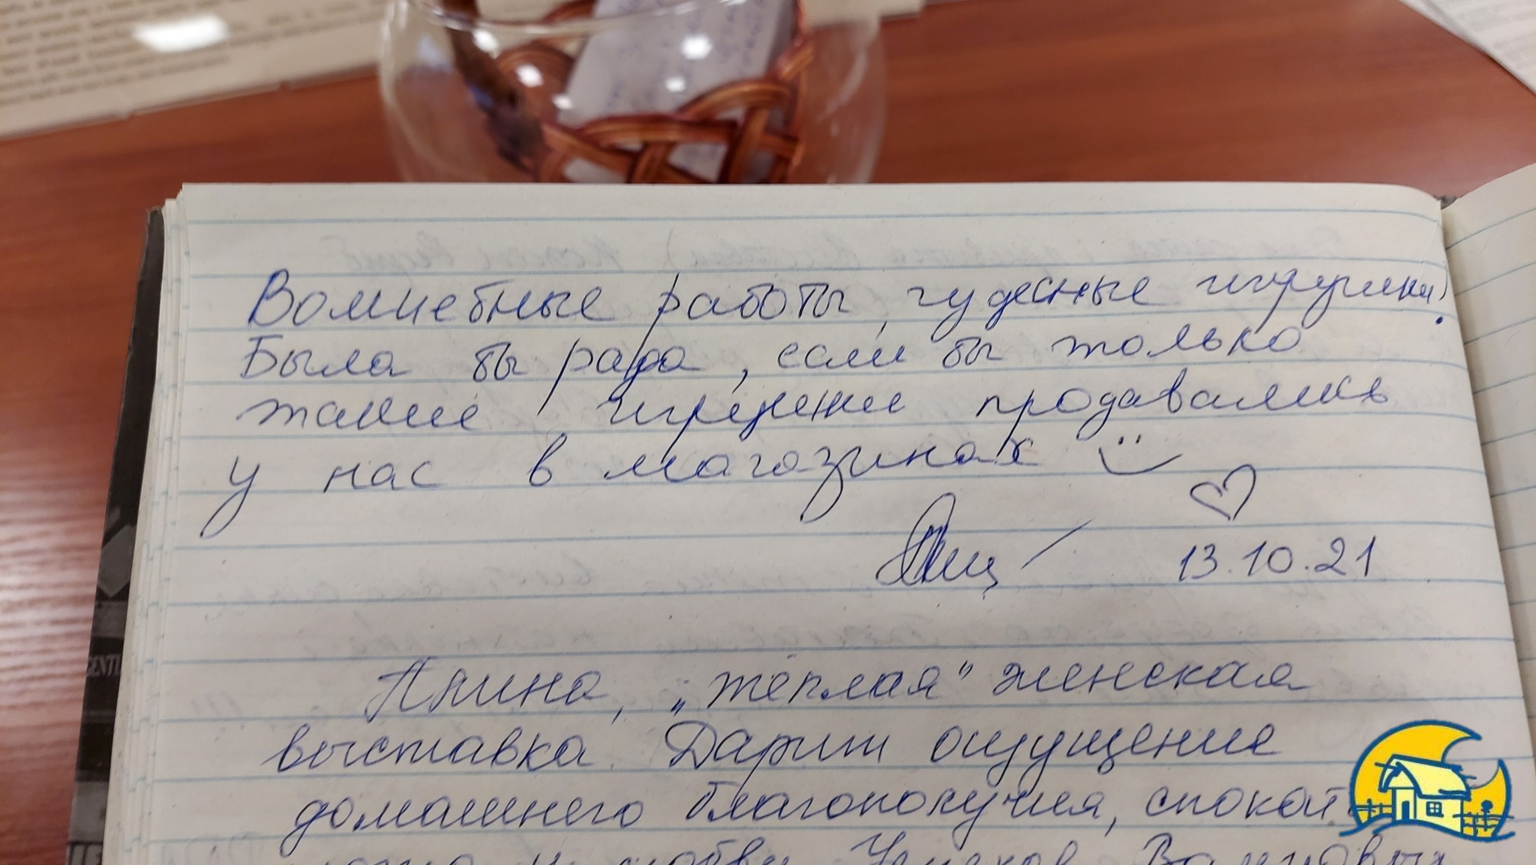 Волшебные работы, чудесные игрушки)
Была бы рада, если бы только
такие игрушки продавались
у нас в магазинах
13.10.21
Алина, „тёплая" женская
выставка. Дарит ощущение
домашнего благополучия, спокой
и любви. Успехов Вам